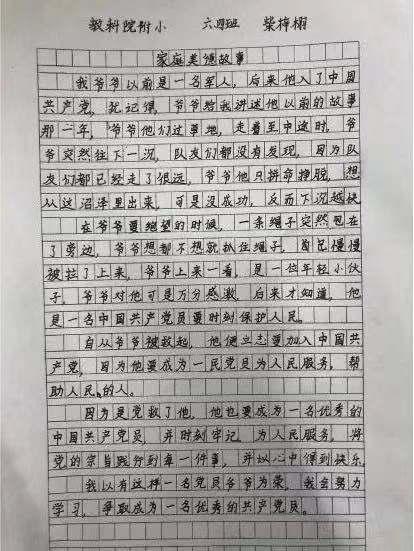 教科院附小 六四班 柴梓栩
家庭美德故事
我爷爷以前是一名军人，后来他入了中国
共产党，犹记得，爷爷给我讲述他以前的故事
那一年，爷爷他们过草地，走着至中途时，爷
爷突然往下一沉，队友们都没有发现，因为队
友们都已经走了很远，爷爷他只拼命挣脱，想
从这沼泽里出来，可是没成功，反而下沉越快
在爷爷要绝望的时候，一条绳子突然现在
了旁边，爷爷想都不想就抓住绳子，自己慢慢
被拉了上来，爷爷上来一看，是一位年轻小伙
子。爷爷对他可是万分感激，后来才知道，他
是一名中国共产党员要时刻保护人民。
自从爷爷被救起，他便立志要加入中国共
产党，因为他要成为一民党员为人民服务，帮
助人民的人。
因为是党救了他，他也要成为一名优秀的
中国共产党员，并时刻牢记，为人民服务，将
党的宗旨践行到每一件事，并从心中得到快乐
我以有这样一名党员爷爷为荣，我会努力
学习，争取成为一名优秀的共产党员。